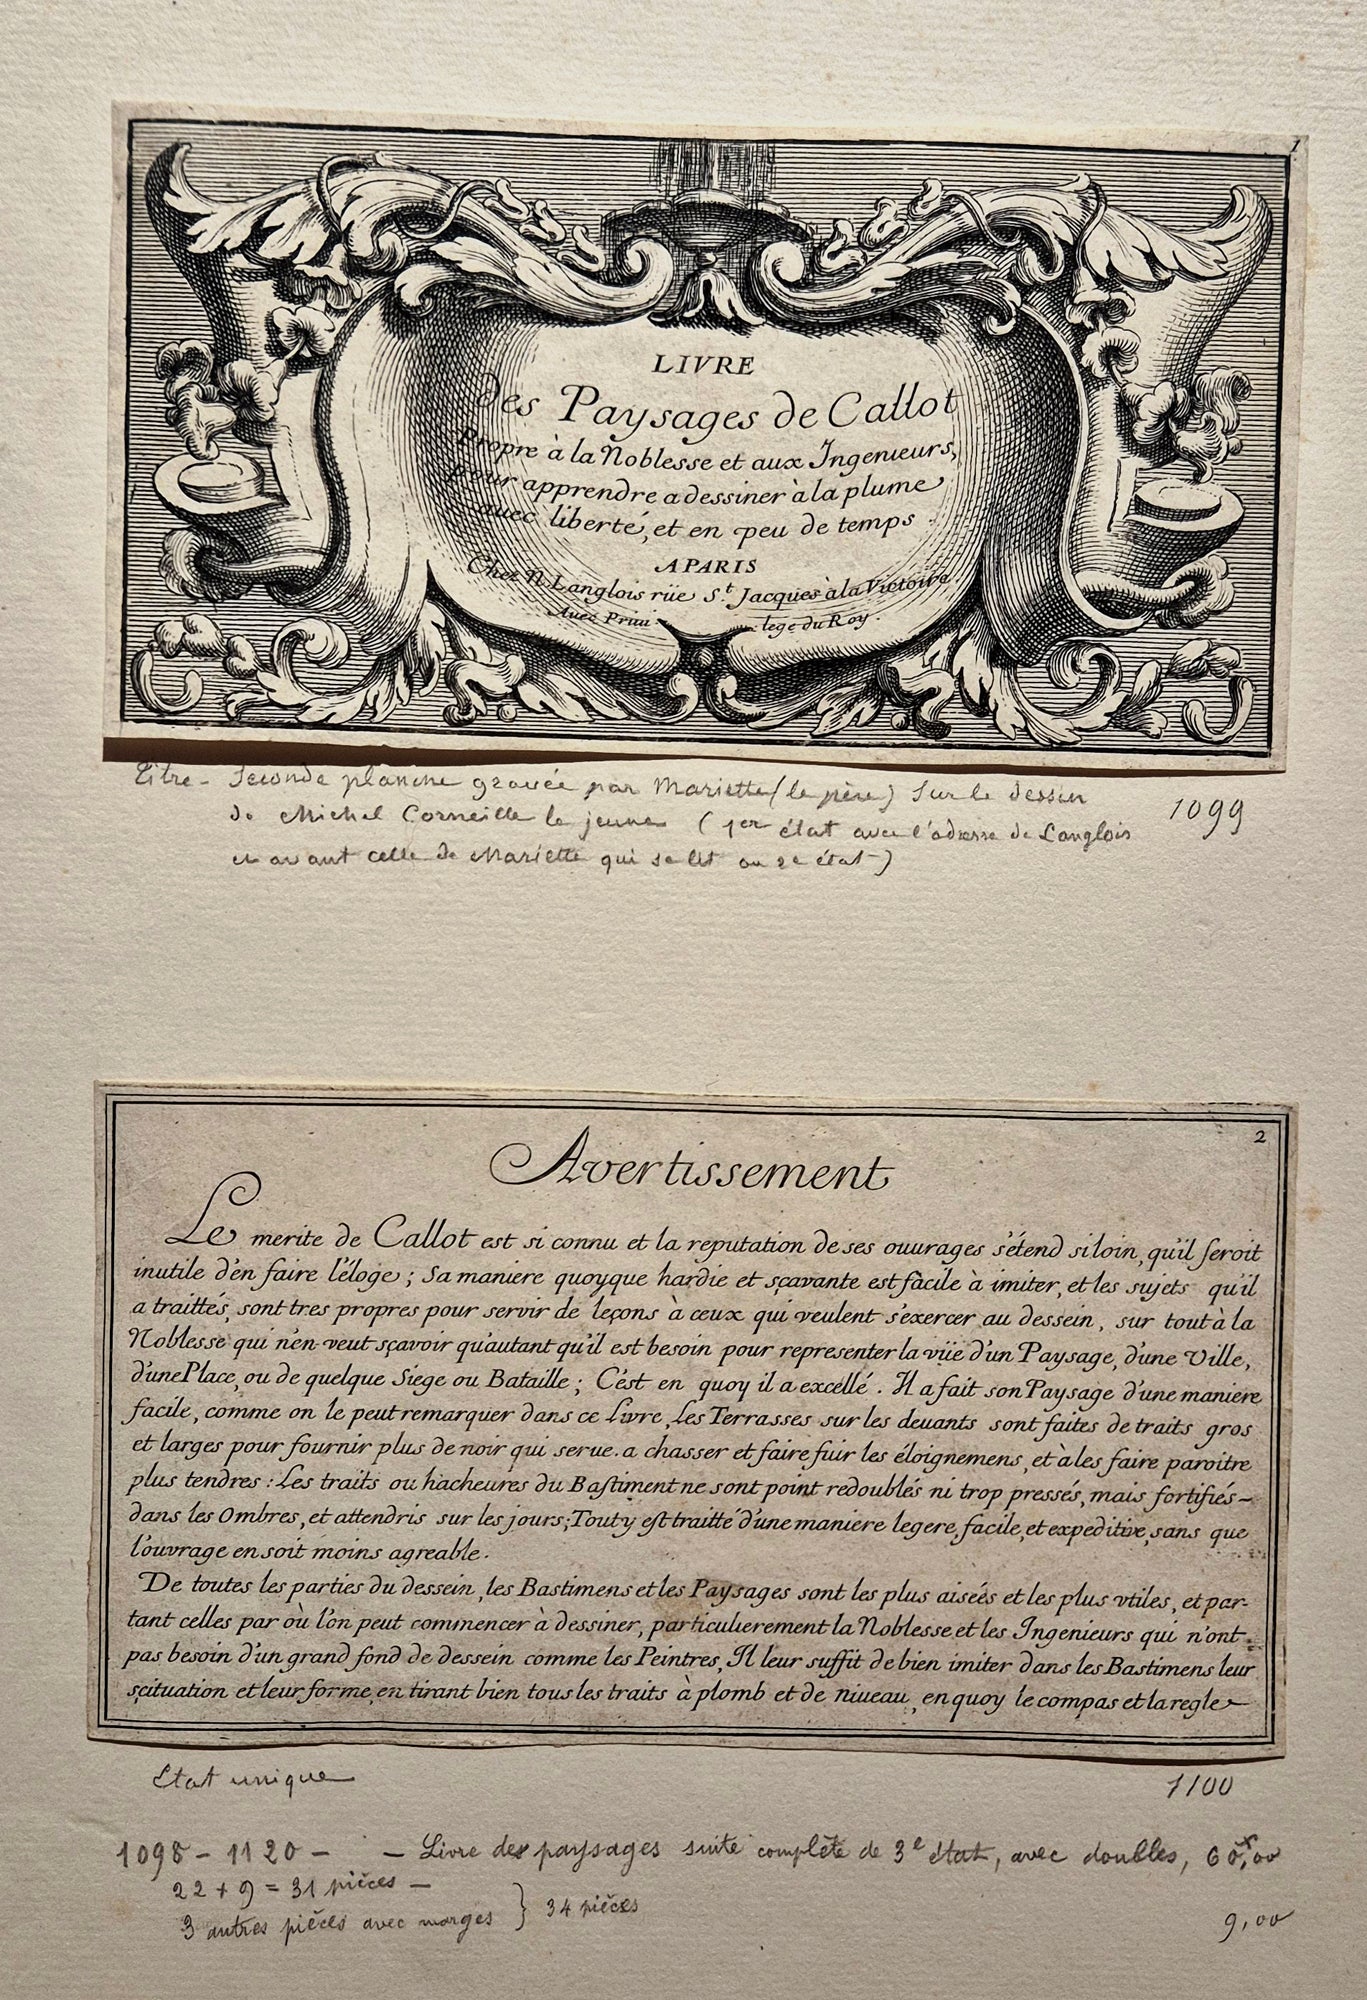 1
LIVRE
des Paysages de Callot
Propre à la Noblesse et aux Ingenieurs,
pour apprendre a dessiner à la plume
avec liberté, et en peu de temps.
A PARIS
Chez N. Langlois rüe St. Jacques à la Victoire
Avec Privilege du Roy.
Titre - Seconde planche gravée par Mariette (le père) sur le dessin
de Michel Corneille le jeune (1er état avec l'adresse de Langlois
et avant celle de Mariette qui se lit au 2e état)
1099
2
Avertissement
Le merite de Callot est si connu et la reputation de ses ouurages s'étend si loin, qu'il seroit
inutile d'en faire l'éloge; Sa maniere quoyque hardie et sçavante est fàcile à imiter, et les sujets qu'il
a traittés, sont tres propres pour servir de leçons à ceux qui veulent s'exercer au dessein, sur tout à la
Noblesse qui n'en veut sçavoir qu'autant qu'il est besoin pour representer la vüe d'un Paysage, d'une Ville,
d'une Place, ou de quelque Siege ou Bataille; C'est en quoy il a excéllé. Il a fait son Paysage d'une maniere
facile, comme on le peut remarquer dans ce Livre, Les Terrasses sur les deuants sont faites de traits gros
et larges pour fournir plus de noir qui serue a chasser et faire fuir les éloignemens, et à les faire paroitre
plus tendres: Les traits ou hacheures du Bastiment ne sont point redoublés ni trop pressés, mais fortifiés
dans les Ombres, et attendris sur les jours; Tout y est traitté d'une maniere legere, facile, et expeditive, sans que
l'ouvrage en soit moins agreable.
De toutes les parties du dessein, les Bastimens et les Paysages sont les plus aiseés et les plus vtiles, et par-
tant celles par où l'on peut commencer à dessiner, particulierement la Noblesse et les Ingenieurs qui n'ont
pas besoin d'un grand fond de dessein comme les Peintres, Il leur suffit de bien imiter dans les Bastimens leur
scituation et leur forme, en tirant bien tous les traits à plomb et de niueau, en quoy le compas et la regle
Etat unique
1100
1098 - 1120 - - Livre des paysages suite complète de 3e état, avec doubles,
22 + 9 = 31 pièces -
3 autres pièces avec marges } 34 pièces
9,00